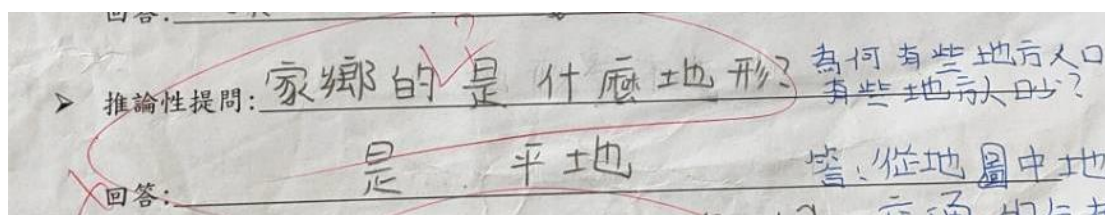 回答:
➤ 推論性提問: 家鄉的是什麼地形?
為何有些地方人口
有些地方人口少?
回答: 是 平地
答:從地圖中地